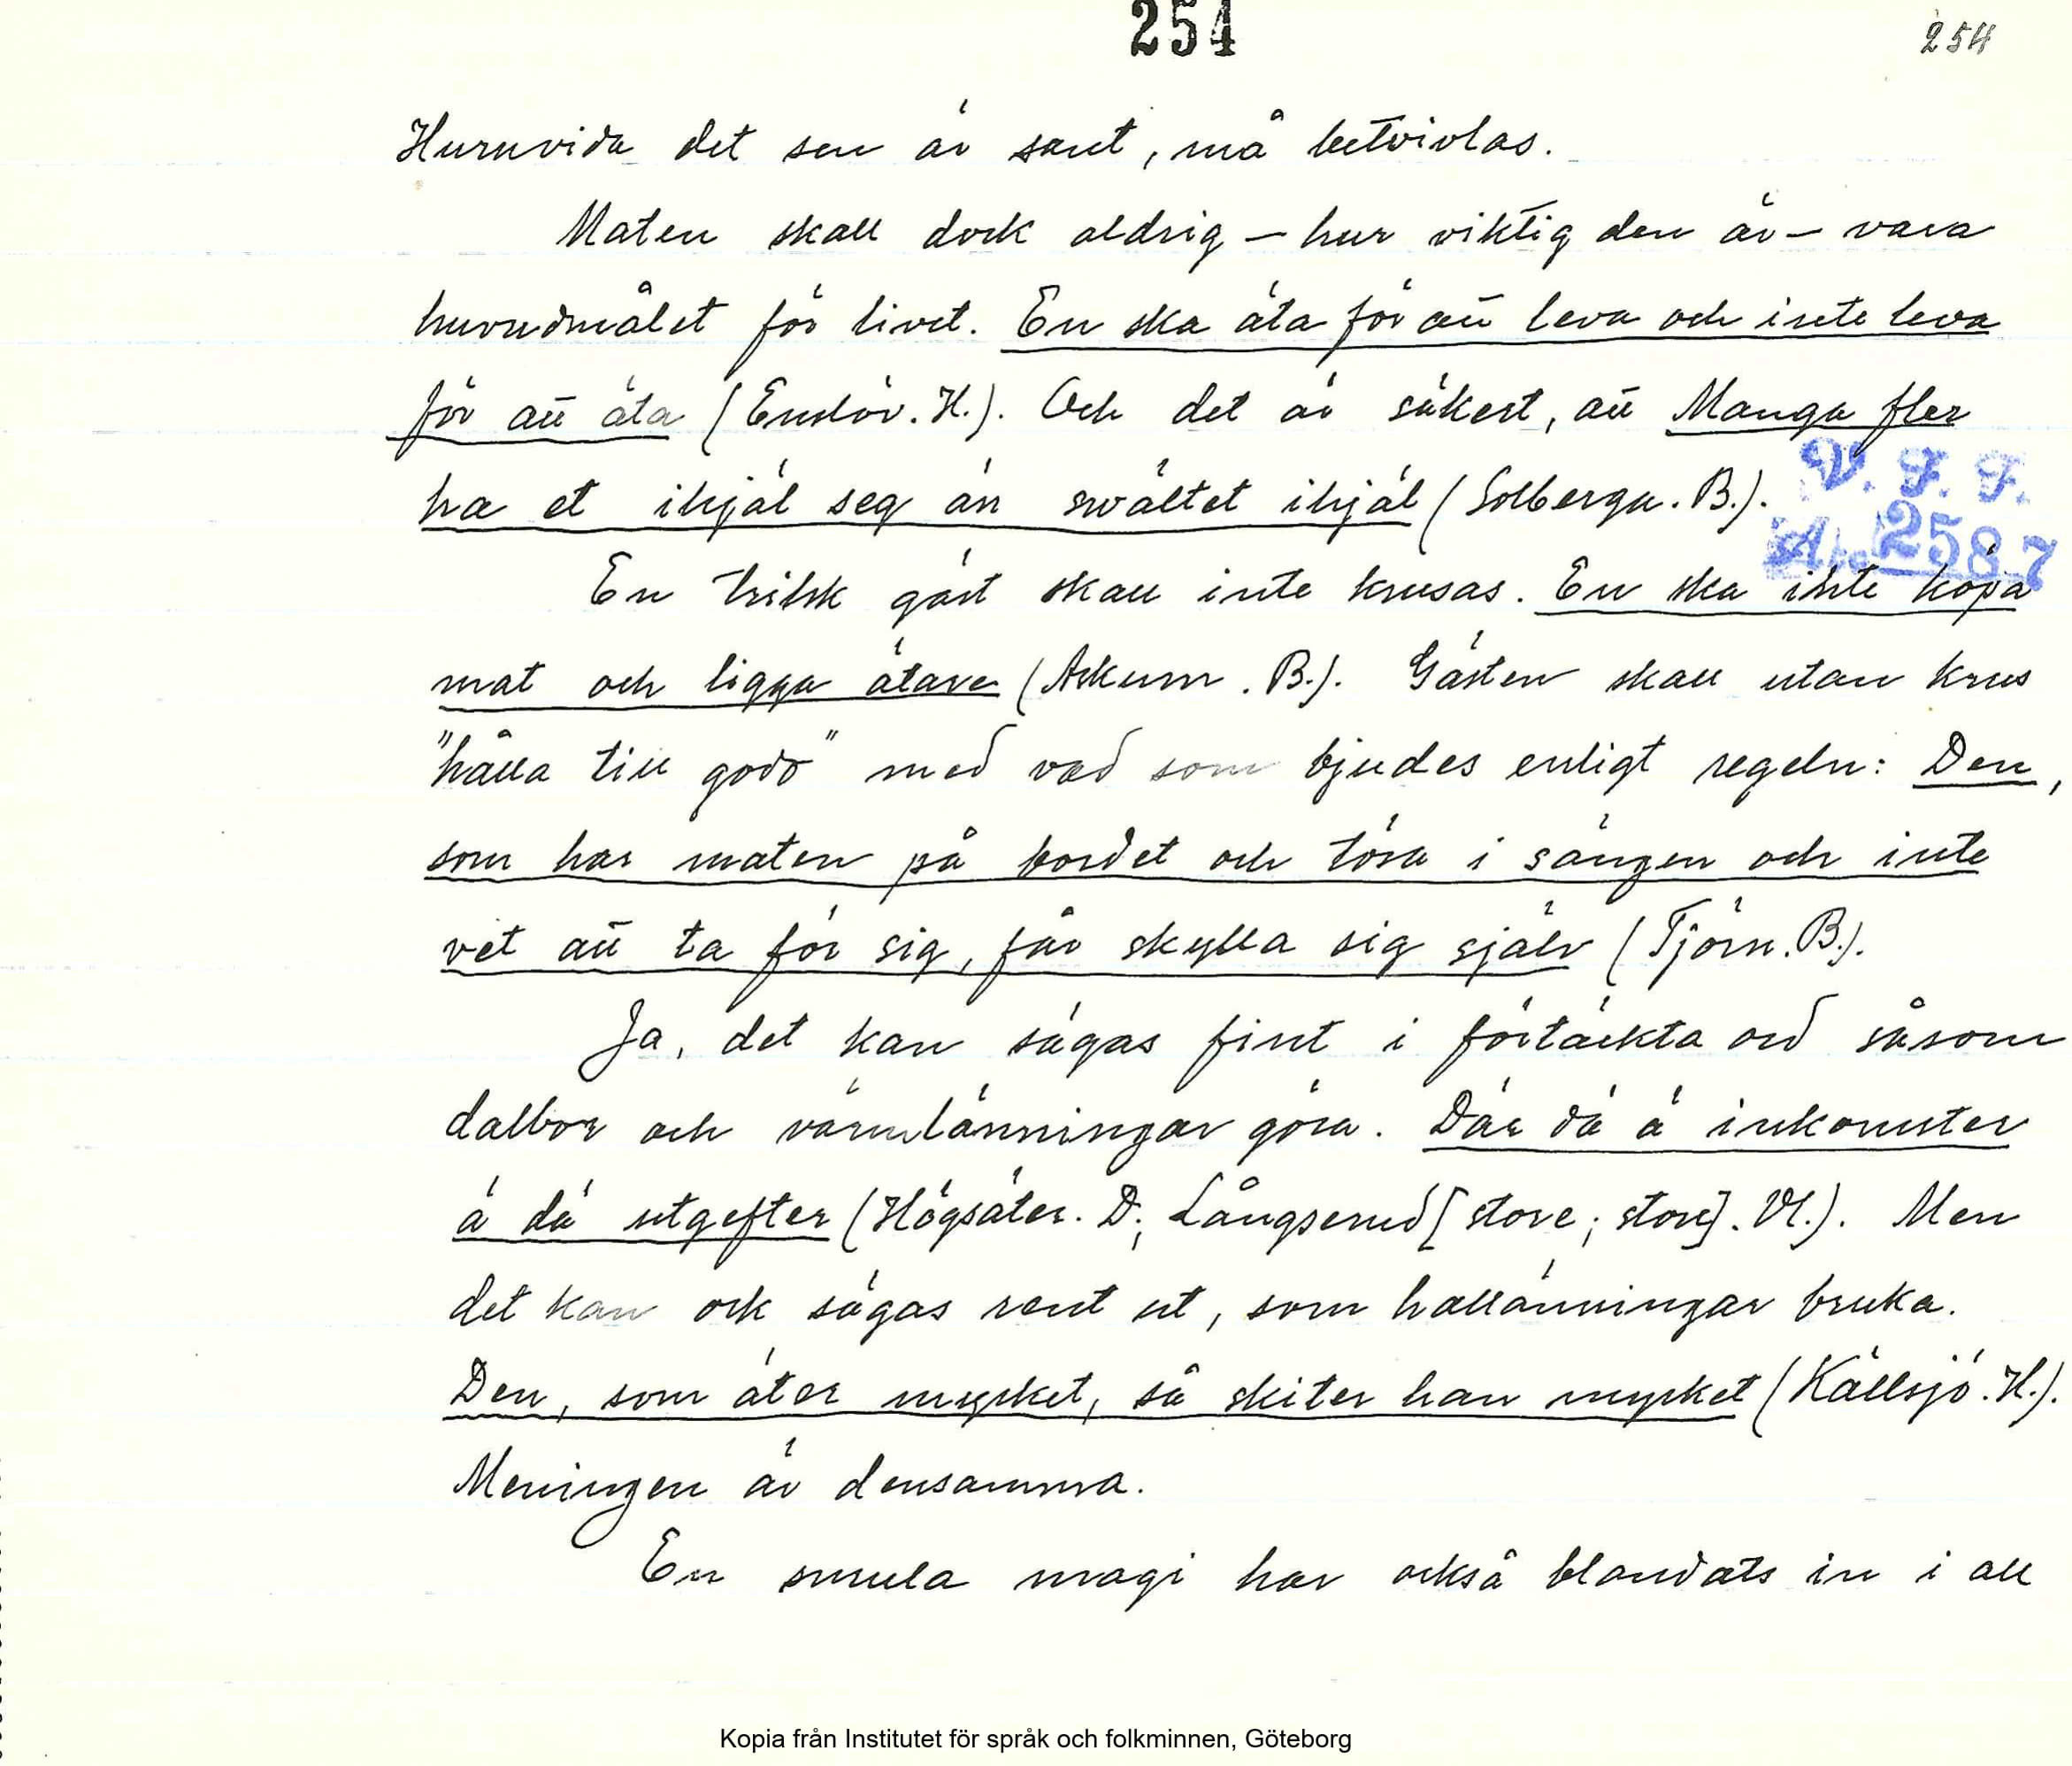 254
254
Huruvida det sen är sant, må betvivlas.
Maten skall dock aldrig – hur viktig den är – vara
huvudmålet för livet. En ska äta för att leva och inte leva
för att äta (Enslöv. H.). Och det är säkert, att Manga fler
ha et ihjäl seg än svältet ihjäl (Solberga. B.).
V. F. F.
2587
En trilsk gäst skall inte krusas. En ska inte köpa
mat och ligga ätare (Askum. B.). Gästen skall utan krus
"hålla till godo" med vad som bjudes enligt regeln: Den,
som har maten på bordet och tösa i sängen och inte
vet att ta för sig, får skylla sig själv (Tjörn. B.).
Ja, det kan sägas fint i förtäckta ord såsom
dalbor och värmlänningar göra. Där dä ä inkomster
ä dä utgefter (Högsäter. D; Långserud [store; store]. Vl.). Men
det kan ock sägas rent ut, som hallänningar bruka.
Den, som äter mycket, så skiter han mycket (Källsjö. H.).
Meningen är densamma.
En smula magi har också blandats in i all
Kopia från Institutet för språk och folkminnen, Göteborg